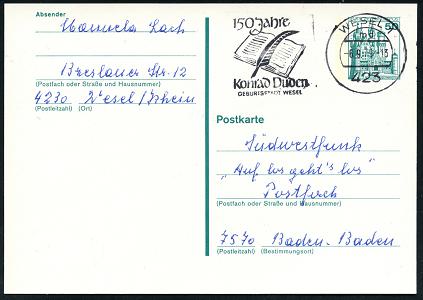 Absender
Manuela Lach
Breslauer Str. 12
(Postfach oder Straße und Hausnummer)
4230 Wesel/Rhein
(Postleitzahl) (Ort)
150 Jahre
Konrad Duden
GEBURTSSTADT WESEL
WESEL
423
50
Postkarte
Südwestfunk
"Auf los geht's los"
Postfach
(Postfach oder Straße und Hausnummer)
7570 Baden-Baden
(Postleitzahl) (Bestimmungsort)